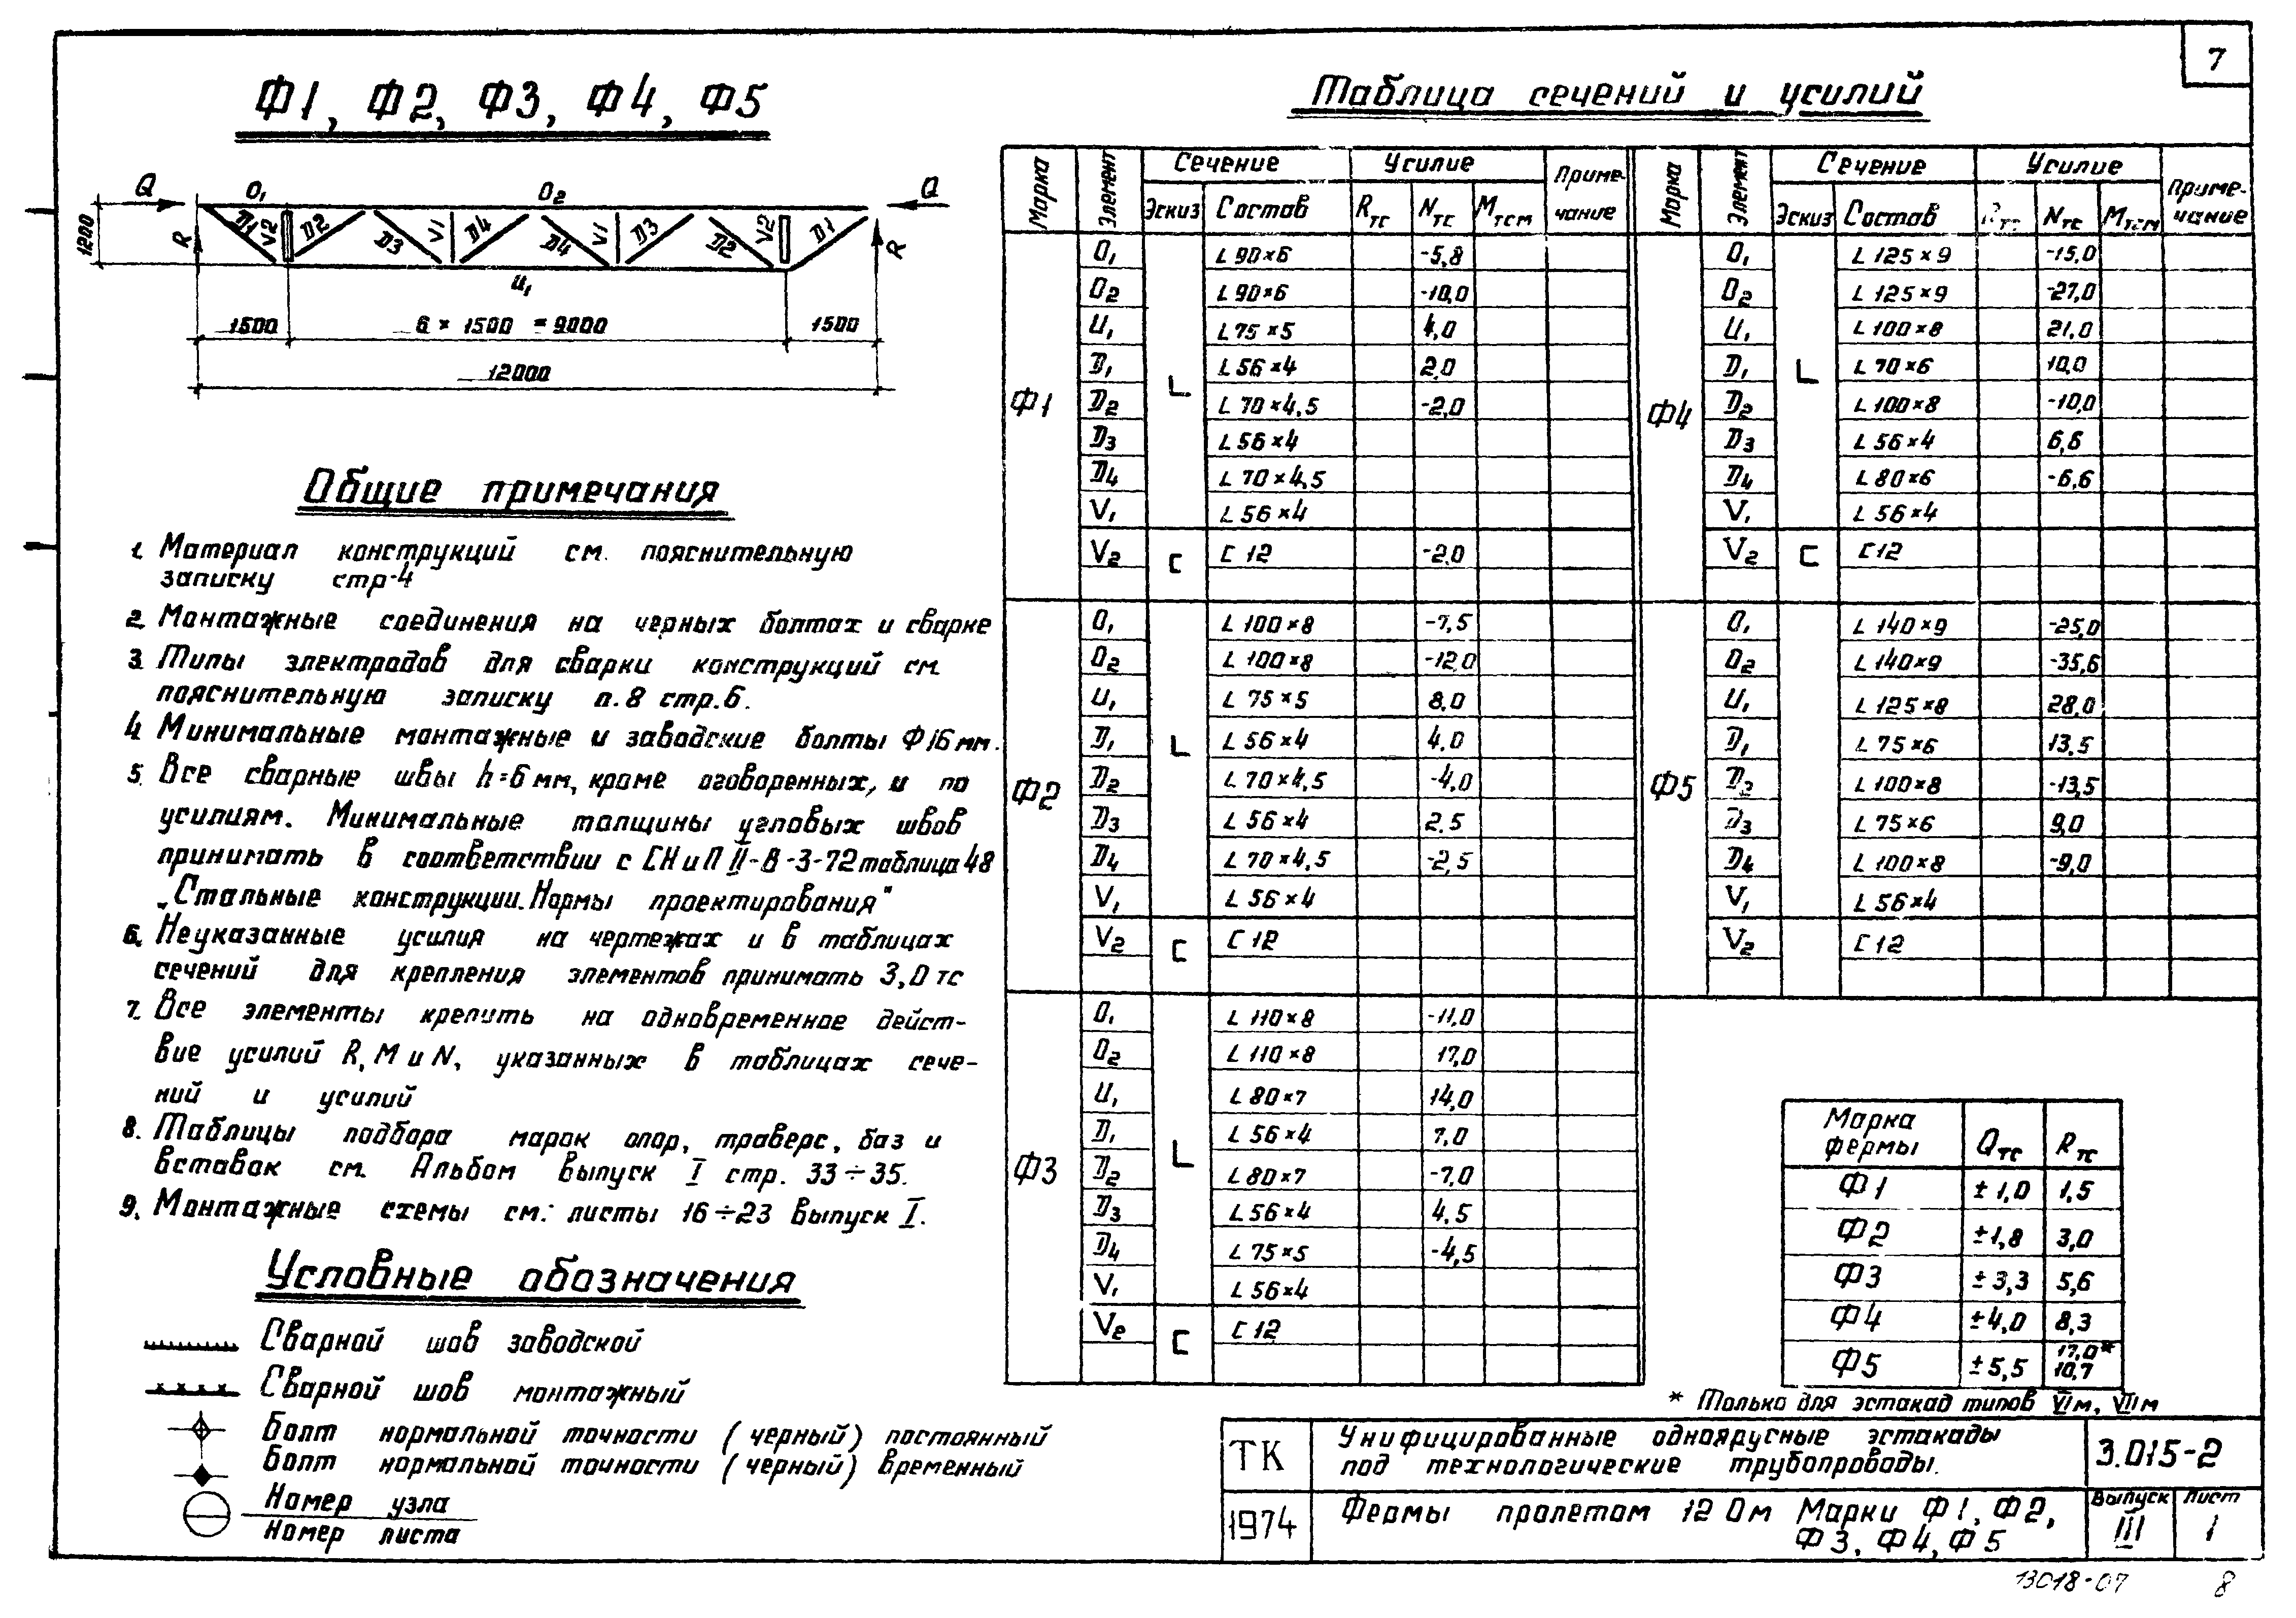 7
Ф1, Ф2, Ф3, Ф4, Ф5
Q O₁ O₂ Q
1200 R D1 V2 D2 D3 V1 D4 D4 V1 D3 D2 V2 D1 R
U₁
1500 6 × 1500 = 9000 1500
12000
Общие примечания
1. Материал конструкций см. пояснительную
записку стр-4
2. Монтажные соединения на черных болтах и сварке
3. Типы электродов для сварки конструкций см.
пояснительную записку п.8 стр.6.
4. Минимальные монтажные и заводские болты Ф16мм.
5. Все сварные швы h=6мм, кроме оговоренных, и по
усилиям. Минимальные толщины угловых швов
принимать в соответствии с СНиП II-В-3-72 таблица 48
„Стальные конструкции. Нормы проектирования"
6. Неуказанные усилия на чертежах и в таблицах
сечений для крепления элементов принимать 3,0 тс
7. Все элементы крепить на одновременное дейст-
вие усилий R, M и N, указанных в таблицах сече-
ний и усилий
8. Таблицы подбора марок опор, траверс, баз и
вставок см. Альбом Выпуск I стр. 33÷35.
9. Монтажные схемы см: листы 16÷23 Выпуск I.
Условные обозначения
Сварной шов заводской
Сварной шов монтажный
Болт нормальной точности (черный) постоянный
Болт нормальной точности (черный) временный
Номер узла
Номер листа
Таблица сечений и усилий
Марка Элемент Сечение Усилие Приме-чание
Эскиз Состав Rтс Nтс Mтсм
Ф1
O₁ L 90×6 -5,8
O₂ L 90×6 -10,0
U₁ L 75×5 4,0
D₁ L 56×4 2,0
D₂ L 70×4,5 -2,0
D₃ L 56×4
D₄ L 70×4,5
V₁ L 56×4
V₂ С С 12 -2,0
Ф2
O₁ L 100×8 -7,5
O₂ L 100×8 -12,0
U₁ L 75×5 8,0
D₁ L 56×4 4,0
D₂ L 70×4,5 -4,0
D₃ L 56×4 2,5
D₄ L 70×4,5 -2,5
V₁ L 56×4
V₂ С С 12
Ф3
O₁ L 110×8 -11,0
O₂ L 110×8 17,0
U₁ L 80×7 14,0
D₁ L 56×4 7,0
D₂ L 80×7 -7,0
D₃ L 56×4 4,5
D₄ L 75×5 -4,5
V₁ L 56×4
V₂ С С 12
Марка Элемент Сечение Усилие Приме-чание
Эскиз Состав Rтс Nтс Mтсм
Ф4
O₁ L 125×9 -15,0
O₂ L 125×9 -27,0
U₁ L 100×8 21,0
D₁ L 70×6 10,0
D₂ L 100×8 -10,0
D₃ L 56×4 6,6
D₄ L 80×6 -6,6
V₁ L 56×4
V₂ С С 12
Ф5
O₁ L 140×9 -25,0
O₂ L 140×9 -35,6
U₁ L 125×8 28,0
D₁ L 75×6 13,5
D₂ L 100×8 -13,5
D₃ L 75×6 9,0
D₄ L 100×8 -9,0
V₁ L 56×4
V₂ С 12
Марка фермы Qтс Rтс
Ф1 ±1,0 1,5
Ф2 ±1,8 3,0
Ф3 ±3,3 5,6
Ф4 ±4,0 8,3
Ф5 ±5,5 17,0* 10,7
* Только для эстакад типов VIм, VIIм
ТК
1974
Унифицированные одноярусные эстакады
под технологические трубопроводы.
3.015-2
Фермы пролетом 12 0м Марки Ф1, Ф2,
Ф3, Ф4, Ф5
Выпуск III
Лист 1
13018-07 8